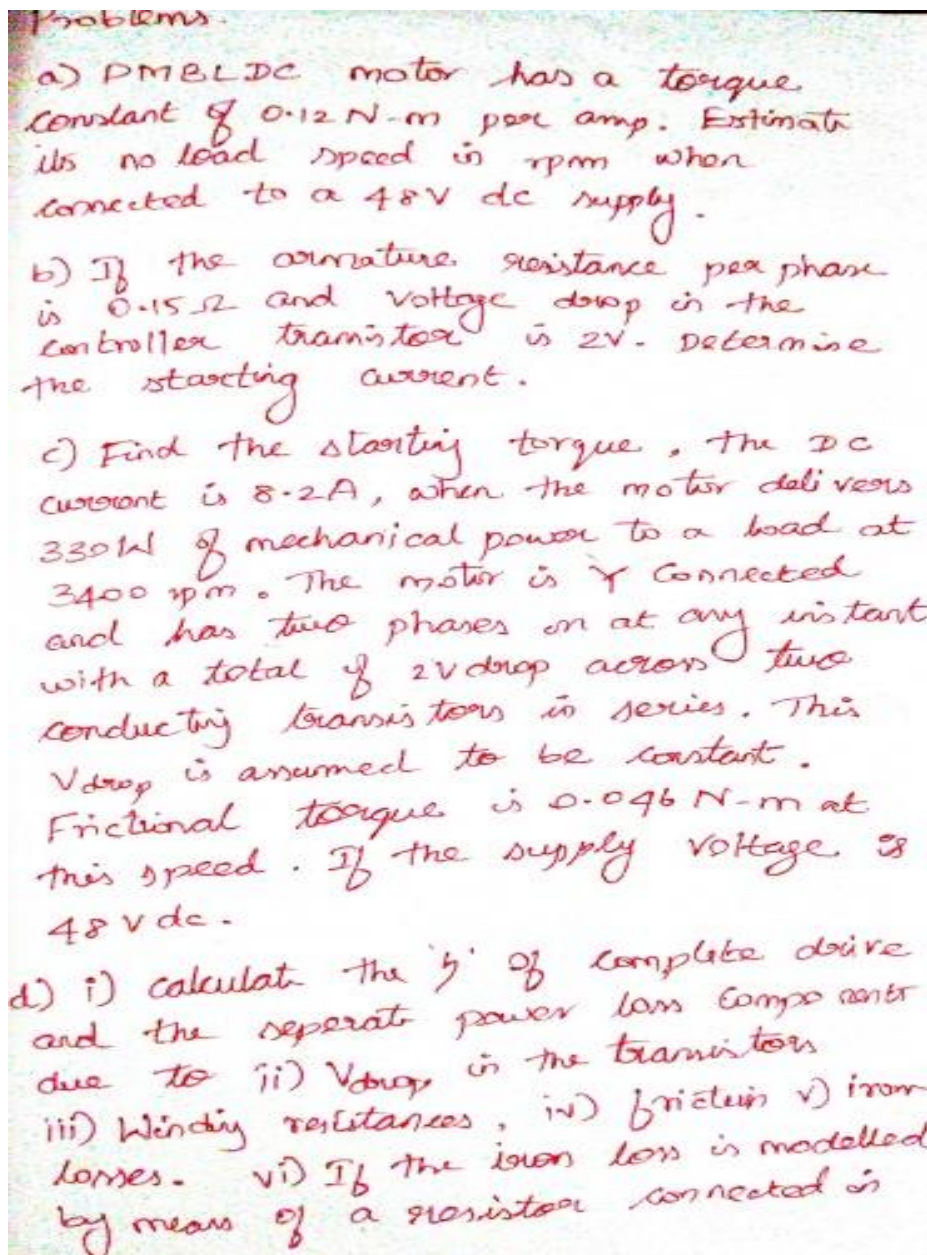 Problems.
a) PMBLDC motor has a torque
constant of 0.12 N-m per amp. Estimate
its no load speed in rpm when
connected to a 48V dc supply.
b) If the armature resistance per phase
is 0.15 Ω and voltage drop in the
controller transistor is 2V. Determine
the starting current.
c) Find the starting torque, the DC
current is 8.2A, when the motor delivers
330W of mechanical power to a load at
3400 rpm. The motor is Y connected
and has two phases on at any instant
with a total of 2V drop across two
conducting transistors in series. This
Vdrop is assumed to be constant.
Frictional torque is 0.046 N-m at
this speed. If the supply voltage is
48 V dc.
d) i) calculate the 'η' of complete drive
and the seperate power loss components
due to ii) Vdrop in the transistors
iii) Winding resistances, iv) friction v) iron
losses. vi) If the iron loss is modelled
by means of a resistor connected in